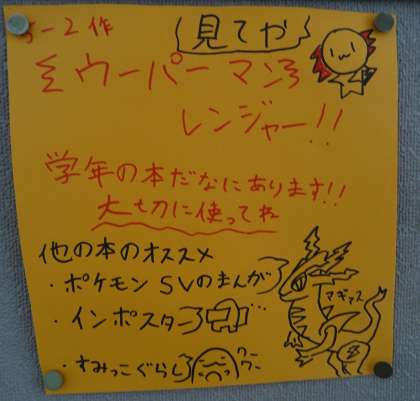 5-2作
見てや
ミウーパーマンミ
レンジャー!!
学年の本だなにあります!!
大切に使ってね
他の本のオススメ
・ポケモンSVのまんが
・インポスター
・すみっこぐらし
マギアス
クークー